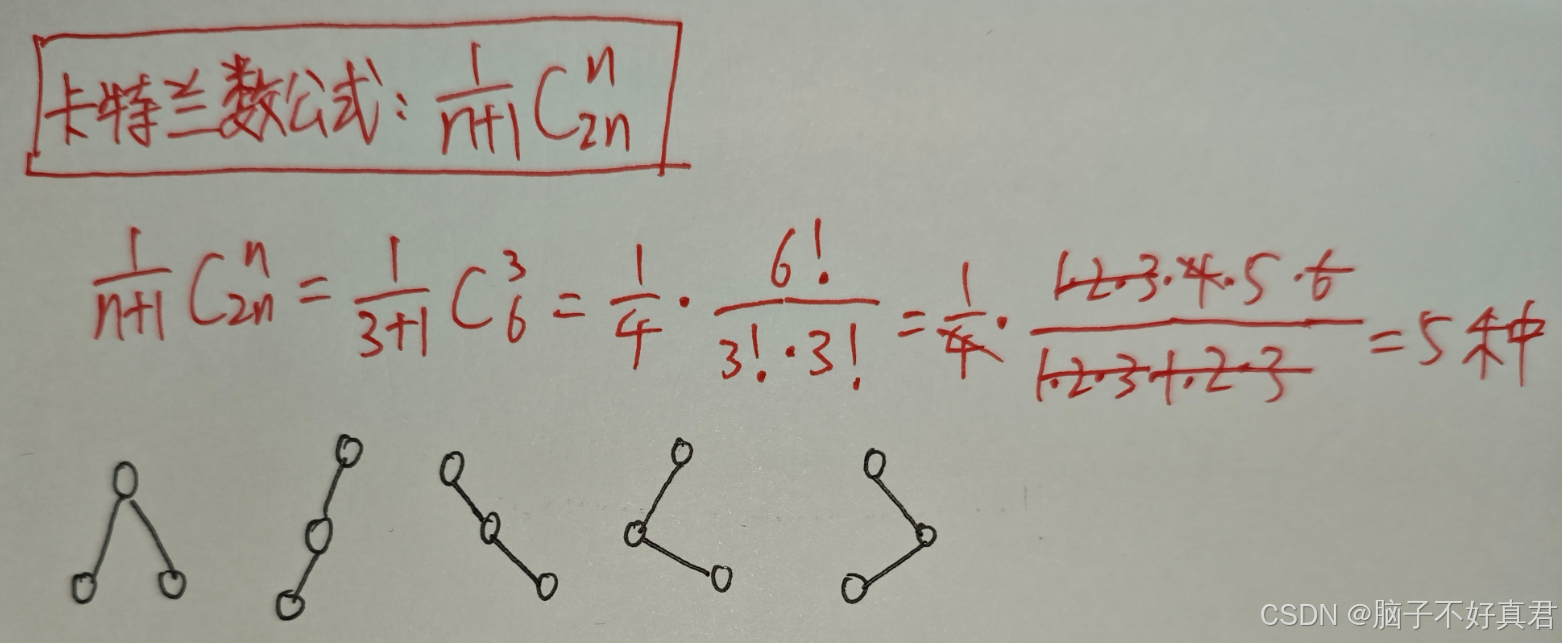 卡特兰数公式：\frac{1}{n+1} C_{2n}^{n}
\frac{1}{n+1} C_{2n}^{n} = \frac{1}{3+1} C_{6}^{3} = \frac{1}{4} · \frac{6!}{3!·3!} = \frac{1}{4} · \frac{1·2·3·4·5·6}{1·2·3·1·2·3} = 5种
CSDN @脑子不好真君